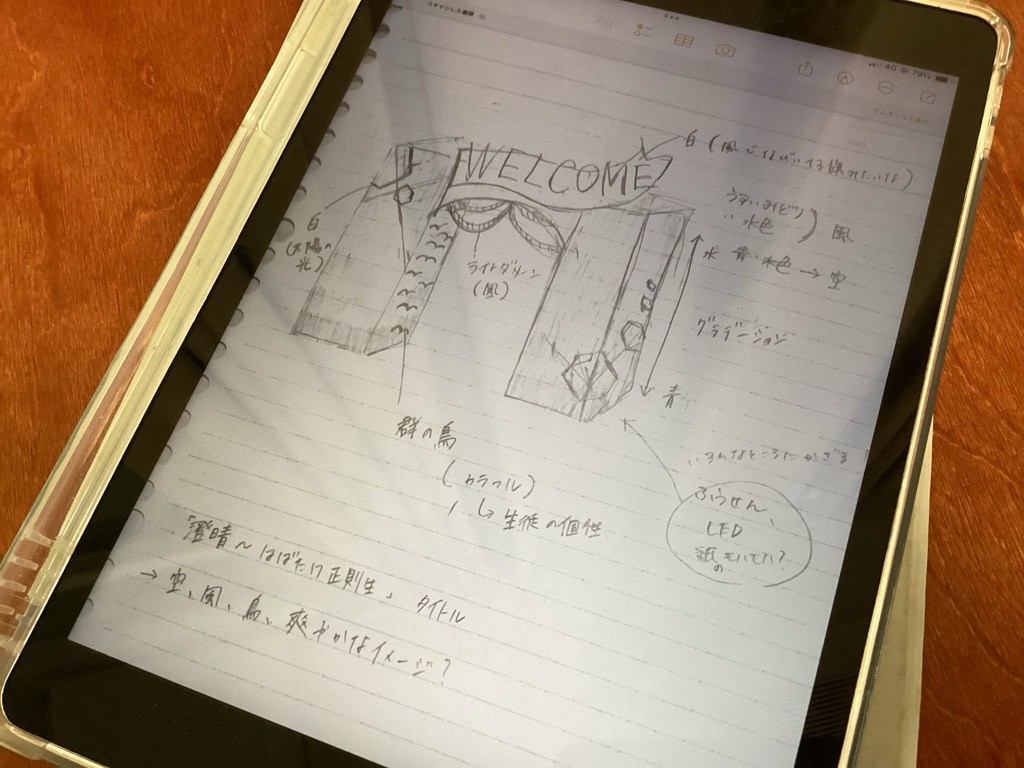 スキャンした書類
4G 79%
WELCOME
白(風でなびいてる様みたいな)
うすいみどり
水色
風
水 青、水色 → 空
白
(太陽の
光)
ライトグリーン
(風)
グラデーション
青
群の鳥
(カラフル)
↳ 生徒の個性
いろんなところにかざる
ふうせん、
LED
「澄晴～はばたけ正則生」 タイトル
→ 空、風、鳥、爽やかなイメージ?